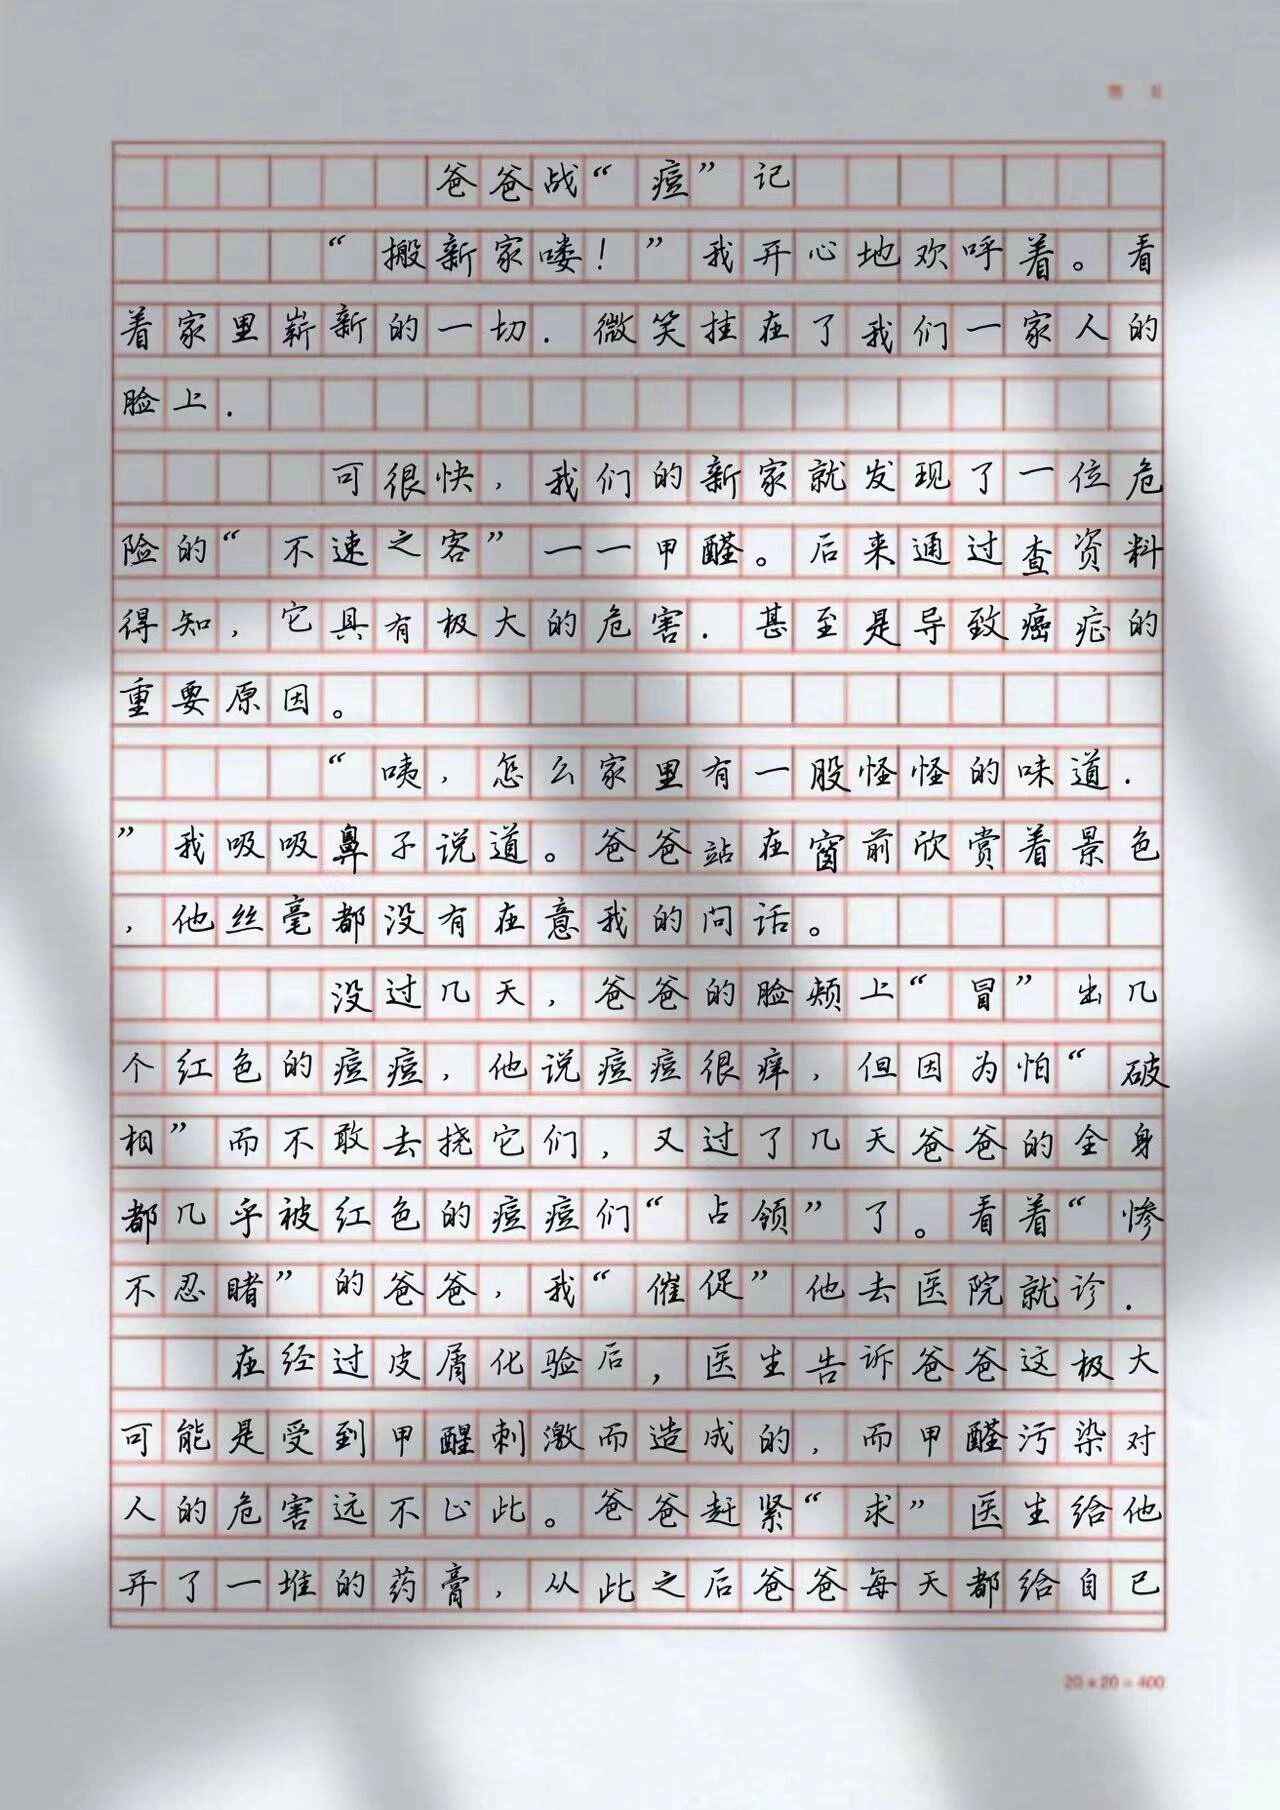 爸爸战“痘”记
“搬新家喽！”我开心地欢呼着。看
着家里崭新的一切.微笑挂在了我们一家人的
脸上.
可很快,我们的新家就发现了一位危
险的“不速之客”一一甲醛。后来通过查资料
得知,它具有极大的危害.甚至是导致癌症的
重要原因。
“咦,怎么家里有一股怪怪的味道.
”我吸吸鼻子说道。爸爸站在窗前欣赏着景色
,他丝毫都没有在意我的问话。
没过几天,爸爸的脸颊上“冒”出几
个红色的痘痘,他说痘痘很痒,但因为怕“破
相”而不敢去挠它们,又过了几天爸爸的全身
都几乎被红色的痘痘们“占领”了。看着“惨
不忍睹”的爸爸,我“催促”他去医院就诊.
在经过皮屑化验后,医生告诉爸爸这极大
可能是受到甲醒刺激而造成的,而甲醛污染对
人的危害远不止此。爸爸赶紧“求”医生给他
开了一堆的药膏,从此之后爸爸每天都给自已
20*20=400